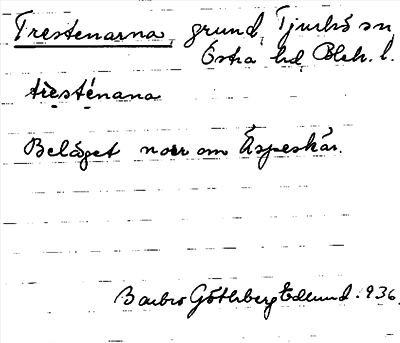 Trestenarna, grund, Tjurkö sn,
Östra hd, Blek. l.
trèsténana
Beläget norr om Äspeskär.
Barbro Göthberg Edlund. 1936.